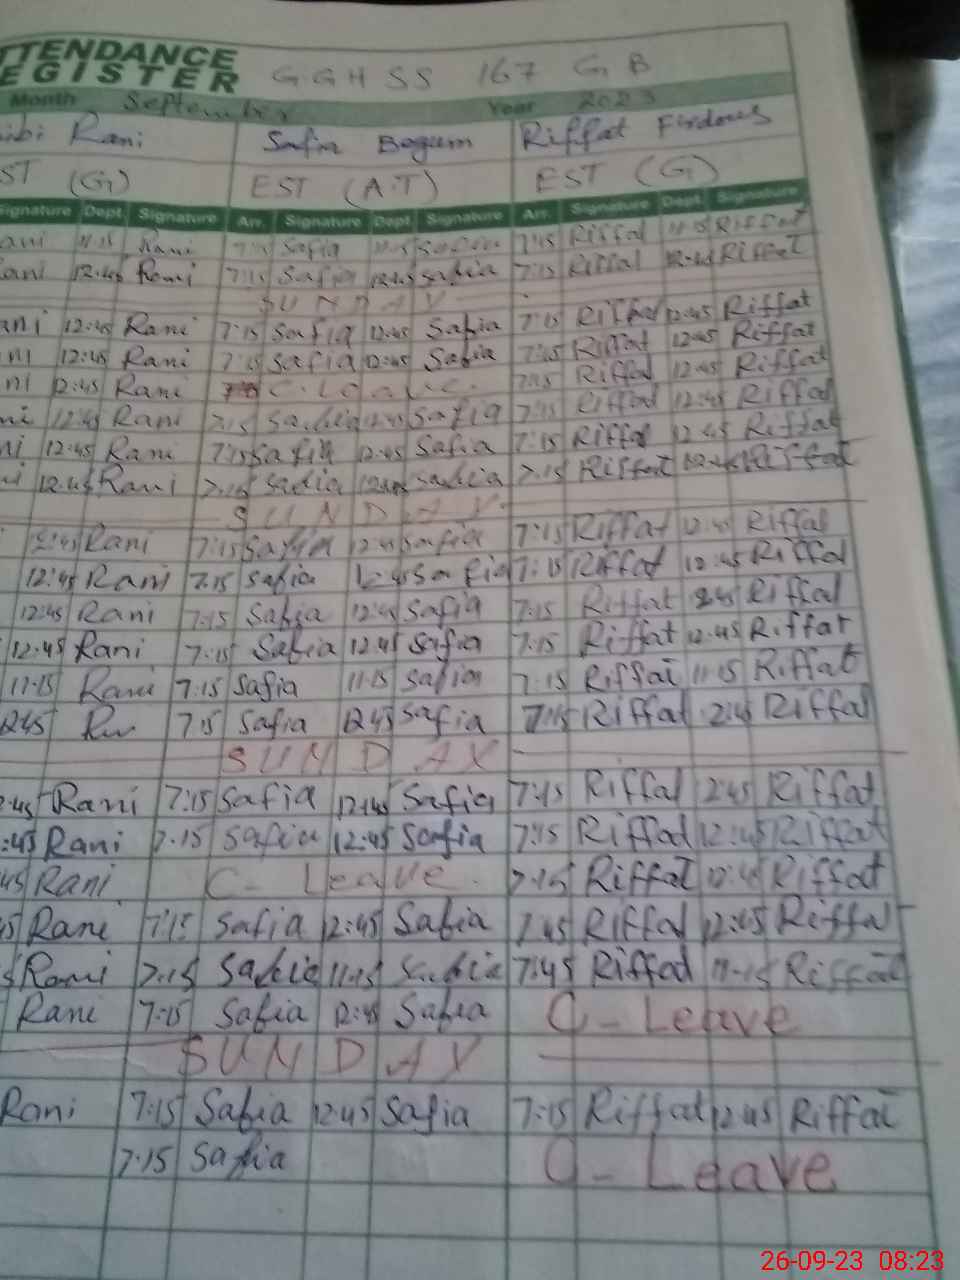 TTENDANCE
EGISTER GGHSS 167 GB
Month September Year 2023
ibi Rani Safia Begum Riffat Firdous
ST (G) EST (A.T) EST (G)
ignature Dept. Signature Arr. Signature Dept. Signature Arr. Signature Dept. Signature
ani 11:15 Rani 7:15 Safia 11:15 Safia 7:15 Riffat 11:15 Riffat
ani 12:45 Rani 7:15 Safia 12:45 Safia 7:15 Riffat 12:45 Riffat
SUNDAY
ani 12:45 Rani 7:15 Safia 12:45 Safia 7:15 Riffat 12:45 Riffat
ni 12:45 Rani 7:15 Safia 12:45 Safia 7:15 Riffat 12:45 Riffat
ni 12:45 Rani C. Leave. 7:15 Riffat 12:45 Riffat
ni 12:45 Rani 7:15 Safia 12:45 Safia 7:15 Riffat 12:45 Riffat
ni 12:45 Rani 7:15 Safia 12:45 Safia 7:15 Riffat 12:45 Riffat
i 12:45 Rani 7:15 Safia 12:45 Safia 7:15 Riffat 12:45 Riffat
SUNDAY
12:45 Rani 7:15 Safia 12:45 Safia 7:15 Riffat 12:45 Riffat
12:45 Rani 7:15 Safia 12:45 Safia 7:15 Riffat 12:45 Riffat
12:45 Rani 7:15 Safia 12:45 Safia 7:15 Riffat 2:45 Riffat
12:45 Rani 7:15 Safia 12:45 Safia 7:15 Riffat 12:45 Riffat
11:15 Rani 7:15 Safia 11:15 Safia 7:15 Riffat 11:15 Riffat
12:45 7:15 Safia 12:45 Safia 7:15 Riffat 2:45 Riffat
SUNDAY
2:45 Rani 7:15 Safia 12:45 Safia 7:15 Riffat 2:45 Riffat
:45 Rani 7:15 Safia 12:45 Safia 7:15 Riffat 12:45 Riffat
45 Rani C- Leave. 7:15 Riffat 12:45 Riffat
5 Rani 7:15 Safia 12:45 Safia 7:45 Riffat 12:45 Riffat
5 Rani 7:15 Safia 11:15 Safia 7:45 Riffat 11:15 Riffat
Rani 7:15 Safia 12:45 Safia C- Leave
SUNDAY
Rani 7:15 Safia 12:45 Safia 7:15 Riffat 12:45 Riffat
7:15 Safia C- Leave
26-09-23 08:23